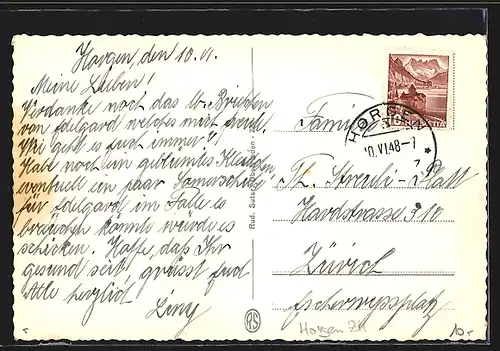 Horgen, den 10. VI.
Meine Lieben!
Verdanke noch das
von Edelgard welches mich freut.
Wie geht es Euch immer?
Habe noch ein Kleidchen
eventuell ein paar Sommerschuhe
für Edelgard im Falle es
brauchen könnte würde es
schicken. Hoffe, daß Ihr
gesund seit, grüsst Euch
Alle herzlich
Liny
Rud. Suter
RS
HELVETIA
HORGEN
10. VI. 48 - 7
Familie
Th. Streuli-Platt
Hardstrasse 310
Zürich
Escherwyssplatz
Horgen ZH
10.-